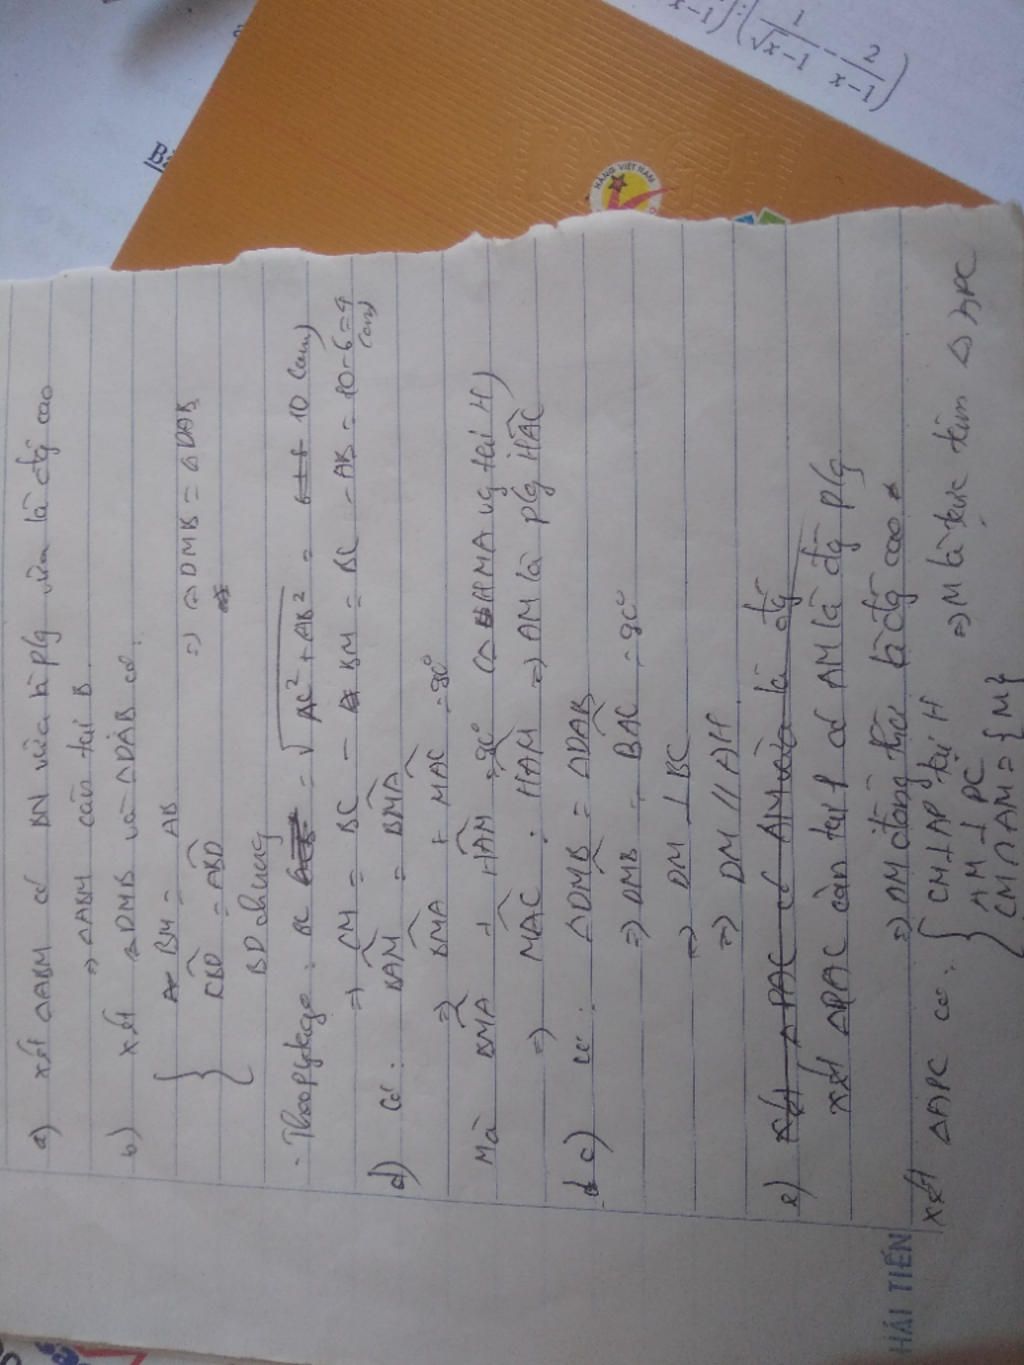 a) xét △ABM có BN vừa là p/g vừa là đg cao
⇒ △ABM cân tại B.
b) xét △DMB và △DAB có:
BM = AB
= ABD
BD chung
⇒ △DMB = △DAB
- Theo pytago: BC = √AC² + AB² = 10 (cm)
⇒ CM = BC - BM = BC - AB = 10-6=4
(cm)
d) Có: BAM = BMA
⇒ BMA + MAC = 90°
Mà BMA + HAM = 90° (△ HMA vg tại H)
⇒ MAC = HAM ⇒ AM là p/g HAC
c) có: △DMB = △DAB
⇒ DMB = BAC = 90°
⇒ DM ⊥ BC
⇒ DM // AH
e) xét △PAC có AM vừa là đg
xét △PAC cân tại P có AM là đg p/g
⇒ DM đồng thời là đg cao
xét △APC có: { CM⊥AP tại H
AM ⊥ PC
CM ∩ AM = {M}
⇒ M là trực tâm △APC
HẢI TIẾN
HÀNG VIỆT NAM
x-1) : (1/√x-1 - 2/x-1)